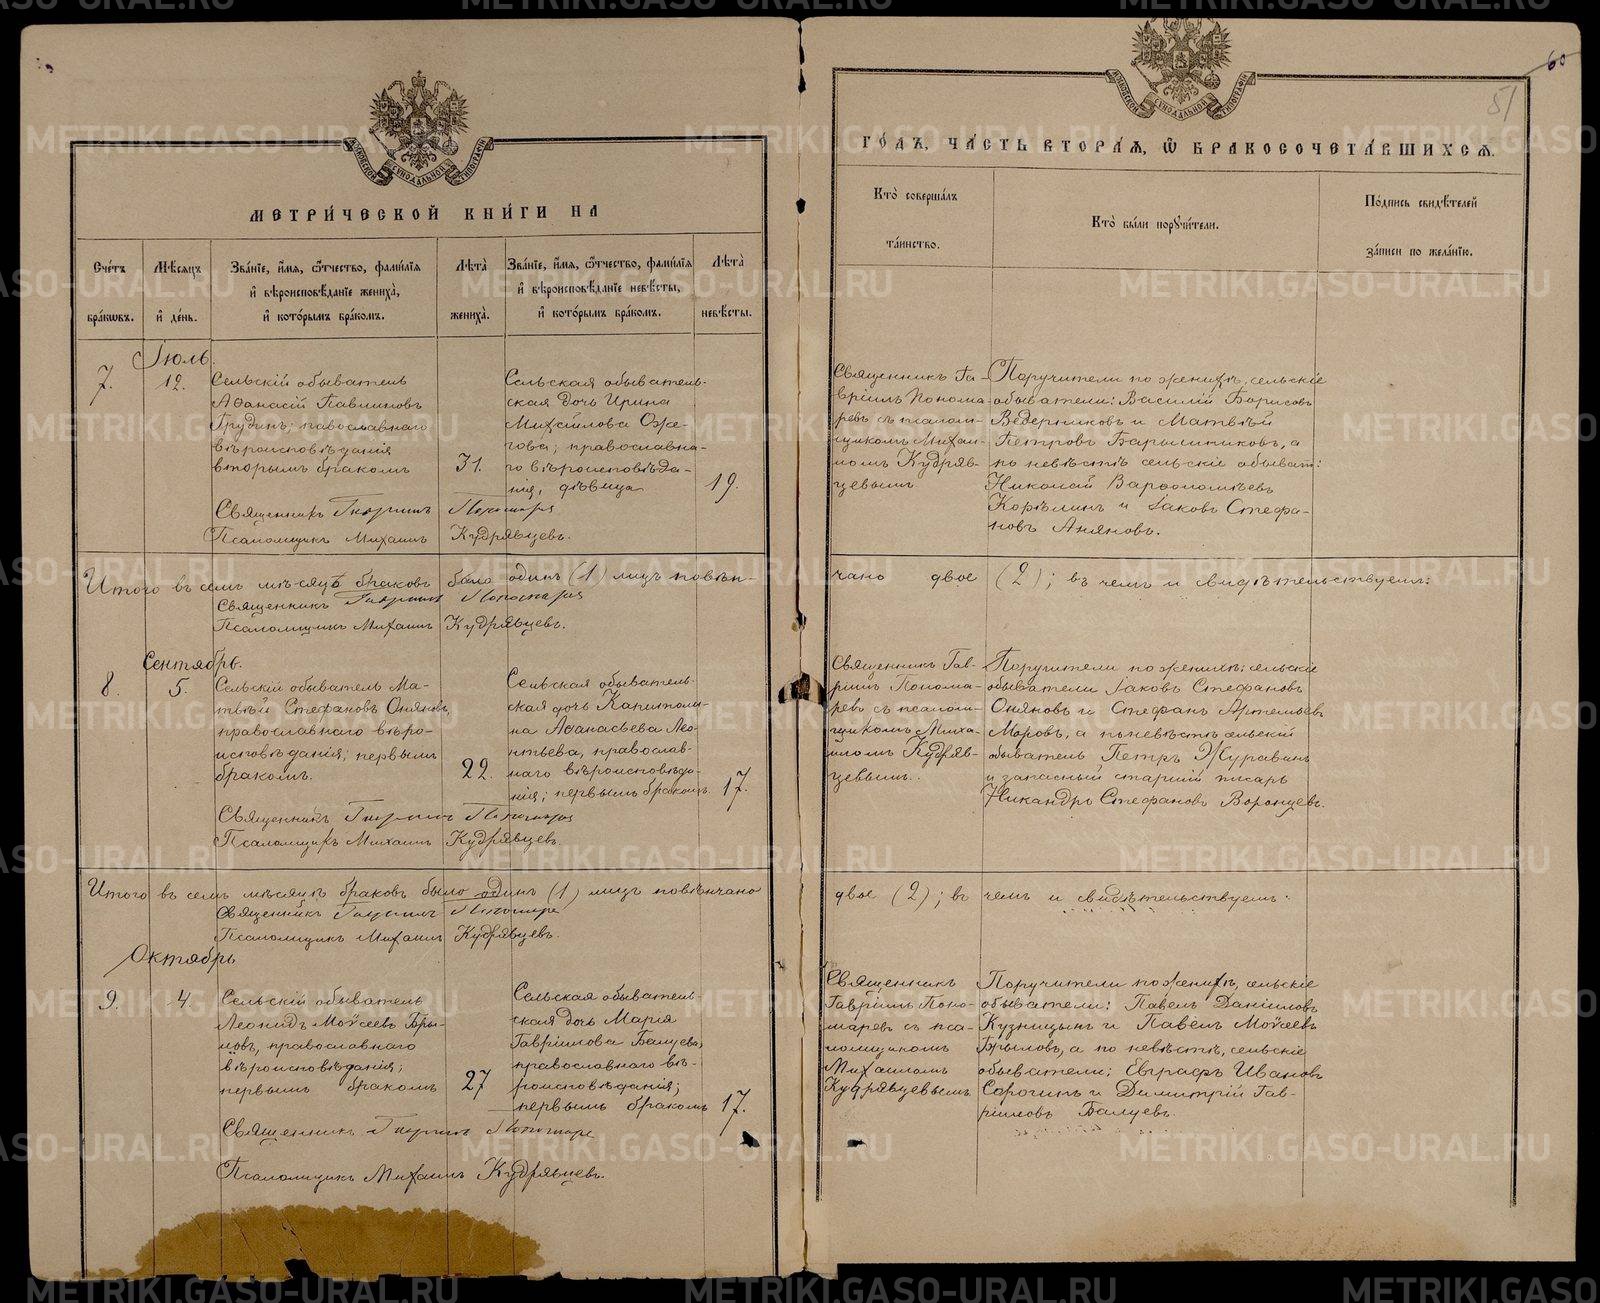 МЕТРИ́ЧЕСКОЙ КНИ́ГИ НА
Счётъ бра́кѡвъ.
Мѣсяцъ и҆ де́нь.
Зва́нїе, и҆́мѧ, ѻ҆́тчество, фами́лїѧ и҆ вѣроисповѣ́данїе жениха̀, и҆ кото́рымъ бра́комъ.
Лѣ́та жениха̀.
Зва́нїе, и҆́мѧ, ѻ҆́тчество, фами́лїѧ и҆ вѣроисповѣ́данїе невѣ́сты, и҆ кото́рымъ бра́комъ.
Лѣ́та невѣ́сты.
Іюль.
7.
12.
Сельскій обыватель
Аѳанасій Павлиновъ
Грудинъ; павославнаго
вѣроисповѣданія
вторымъ бракомъ
31.
Сельская обыватель-
ская дочь Ирина
Михайлова Оже-
гова; православна-
го вѣроисповѣда-
нія, дѣвица
19.
Священникъ Гавріилъ Пономарев
Псаломщикъ Михаилъ Кудрявцевъ.
Итого въ семъ мѣсяцѣ браковъ было одинъ (1) лицъ повѣн-
Священникъ Гавріилъ Пономарев
Псаломщикъ Михаилъ Кудрявцевъ.
Сентябрь.
8.
5.
Сельскій обыватель Ма-
твѣй Стефановъ Оняновъ,
православнаго вѣро-
исповѣданія; первымъ
бракомъ.
22.
Сельская обыватель-
ская дочь Капитоли-
на Аѳанасьева Лео-
нтьева, православ-
наго вѣроисповѣда-
нія; первымъ бракомъ.
17.
Священникъ Гавріилъ Пономарев
Псаломщикъ Михаилъ Кудрявцевъ.
Итого въ семъ мѣсяцѣ браковъ было одинъ (1) лицъ повѣнчано
Священникъ Гавріилъ Пономарев
Псаломщикъ Михаилъ Кудрявцевъ.
Октябрь
9.
4.
Сельскій обыватель
Леонидъ Моѵсеевъ Бры-
ловъ, православнаго
вѣроисповѣданія;
первымъ бракомъ
27
Сельская обыватель
ская дочь Марія
Гавріилова Балуева,
православнаго вѣ-
роисповѣданія;
первымъ бракомъ
17.
Священникъ Гавріилъ Пономарев
Псаломщикъ Михаилъ Кудрявцевъ.
60
51
ГО́ДЪ, ЧА́СТЬ ВТОРА́Ѧ, Ѽ БРАКОСОЧЕТА́ВШИХСѦ.
Кто̀ соверша́лъ та́инство.
Кто̀ бы́ли порꙋчи́тели.
По́дпись свидѣ́телей за́писи по жела́нїю.
Священникъ Га-
вріилъ Понома-
ревъ съ псалом-
щикомъ Михаи-
ломъ Кудряв-
цевымъ
Поручители по женихѣ, сельскіе
обыватели: Василій Борисовъ
Ведерниковъ и Матвѣй
Петровъ Барышниковъ, а
по невѣстѣ сельскіе обыват:
Николай Варѳоломѣевъ
Корѣлинъ и Іаковъ Стефа-
новъ Аняновъ.
чано двое (2); въ чемъ и свидѣтельствуемъ:
Священникъ Гав-
ріилъ Понома-
ревъ съ псалом-
щикомъ Миха-
иломъ Кудряв-
цевымъ.
Поручители по женихѣ: сельскіе
обыватели Іаковъ Стефановъ
Оняновъ и Стефанъ Артемьевъ
Моровъ, а по невѣстѣ сельскій
обыватель Петръ Журавинъ
и запасный старшій писарь
Никандръ Стефановъ Воронцевъ.
двое (2); въ чемъ и свидѣтельствуемъ:
Священникъ
Гавріилъ Поно-
маревъ съ пса-
ломщикомъ
Михаиломъ
Кудрявцевымъ
Поручители по женихѣ, сельскіе
обыватели: Павелъ Даніиловъ
Кузницынъ и Павелъ Моѵсеевъ
Брыловъ, а по невѣстѣ, сельскіе
обыватели; Евграфъ Ивановъ
Сорогинъ и Димитрій Гав-
ріиловъ Балуевъ.
METRIKI.GASO-URAL.RU